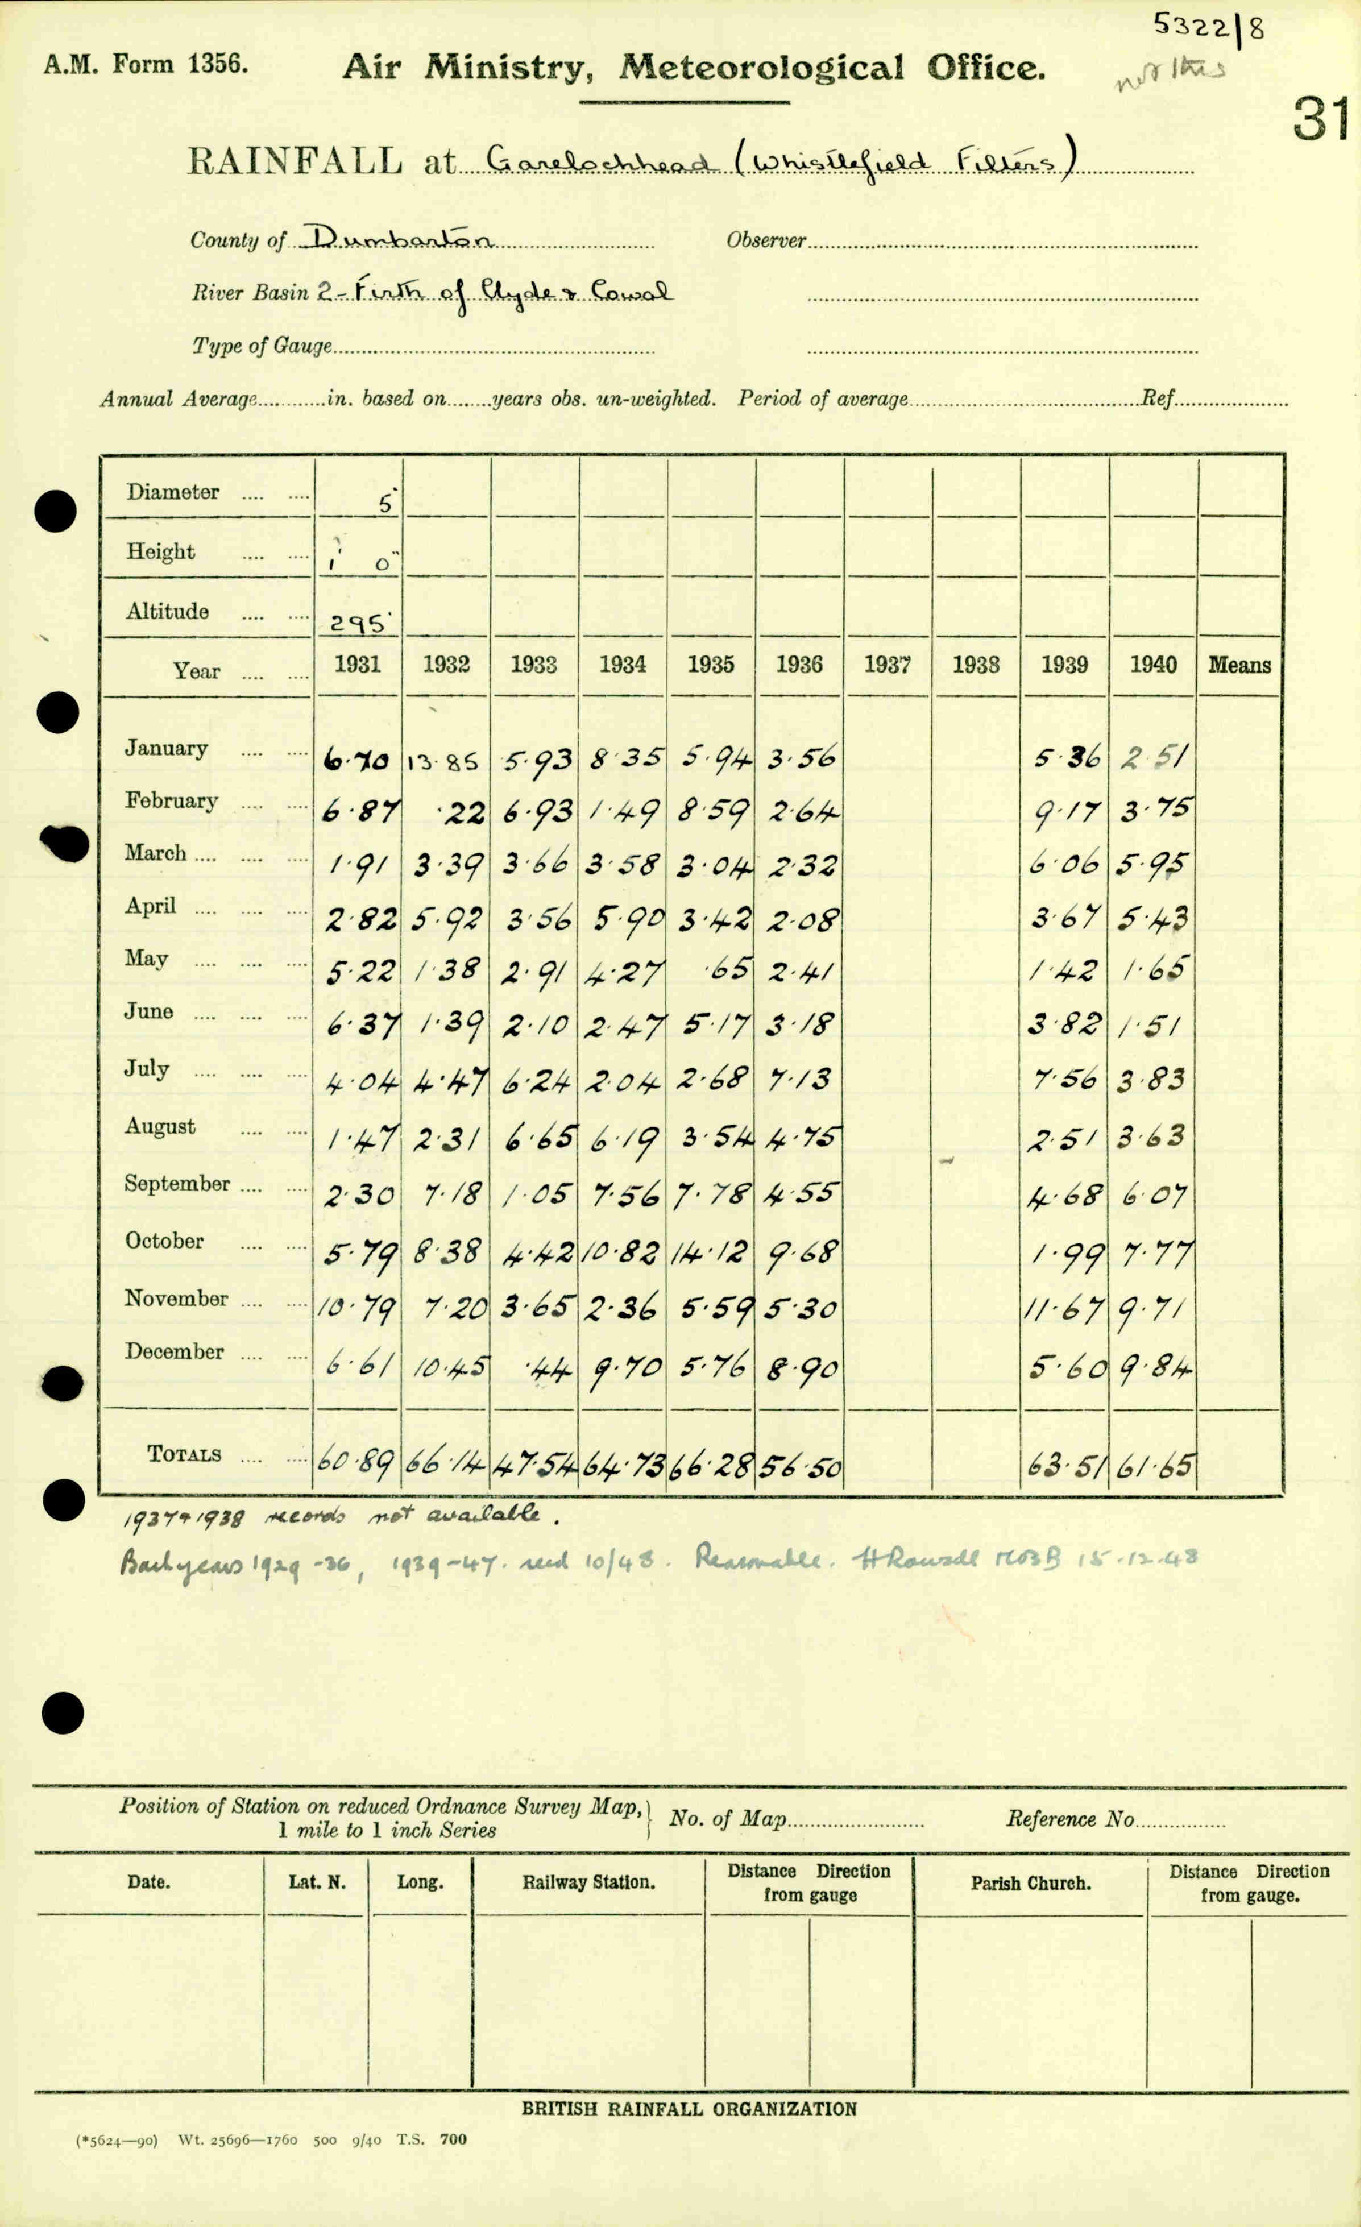 5322/8
A.M. Form 1356. Air Ministry, Meteorological Office.
not this
31
RAINFALL at Garelochhead (Whistlefield Filters)
County of Dumbarton Observer
River Basin 2-Firth of Clyde & Cowal
Type of Gauge
Annual Average in. based on years obs. un-weighted. Period of average Ref
Diameter 5"
Height 1' 0"
Altitude 295'
Year 1931 1932 1933 1934 1935 1936 1937 1938 1939 1940 Means
January 6.70 13.85 5.93 8.35 5.94 3.56 5.36 2.51
February 6.87 .22 6.93 1.49 8.59 2.64 9.17 3.75
March 1.91 3.39 3.66 3.58 3.04 2.32 6.06 5.95
April 2.82 5.92 3.56 5.90 3.42 2.08 3.67 5.43
May 5.22 1.38 2.91 4.27 .65 2.41 1.42 1.65
June 6.37 1.39 2.10 2.47 5.17 3.18 3.82 1.51
July 4.04 4.47 6.24 2.04 2.68 7.13 7.56 3.83
August 1.47 2.31 6.65 6.19 3.54 4.75 2.51 3.63
September 2.30 7.18 1.05 7.56 7.78 4.55 4.68 6.07
October 5.79 8.38 4.42 10.82 14.12 9.68 1.99 7.77
November 10.79 7.20 3.65 2.36 5.59 5.30 11.67 9.71
December 6.61 10.45 .44 9.70 5.76 8.90 5.60 9.84
TOTALS 60.89 66.14 47.54 64.73 66.28 56.50 63.51 61.65
1937 & 1938 records not available.
Back years 1929-36, 1939-47. recd 10/48. Reasonable. 15.12.48
Position of Station on reduced Ordnance Survey Map, } No. of Map Reference No
1 mile to 1 inch Series
Date. Lat. N. Long. Railway Station. Distance Direction from gauge Parish Church. Distance Direction from gauge.
BRITISH RAINFALL ORGANIZATION
(*5624—90) Wt. 25696—1760 500 9/40 T.S. 700